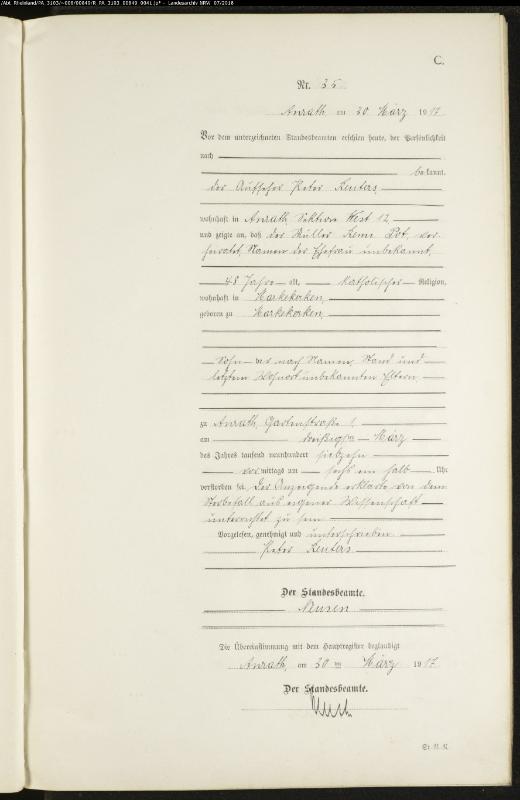 /Abt_Rheinland/PA_3103/~008/00849/R_PA_3103_00849_0041.jp* - Landesarchiv NRW 07/2018
C.
Nr. 35
Anrath am 30 März 1917
Vor dem unterzeichneten Standesbeamten erschien heute, der Persönlichkeit
nach
bekannt,
der Aufseher Peter Reuters
wohnhaft in Anrath, Sektion West 12,
und zeigte an, daß der Müller Remi Pot, ver-
heiratet, Namen der Ehefrau unbekannt,
48 Jahre alt, katholischer Religion,
wohnhaft in
geboren zu
Sohn der nach Namen, Stand und
letztem Wohnort unbekannten Eltern,
zu Anrath, Gartenstraße 1,
am dreißigsten März
des Jahres tausend neunhundert siebzehn
vormittags um sechs ein halb Uhr
verstorben sei. Der Anzeigende erklärte von dem
Sterbefall aus eigener Wissenschaft
unterrichtet zu sein
Vorgelesen, genehmigt und unterschrieben
Peter Reuters
Der Standesbeamte.
Die Übereinstimmung mit dem Hauptregister beglaubigt
Anrath, am 30 ten März 1917
Der Standesbeamte.